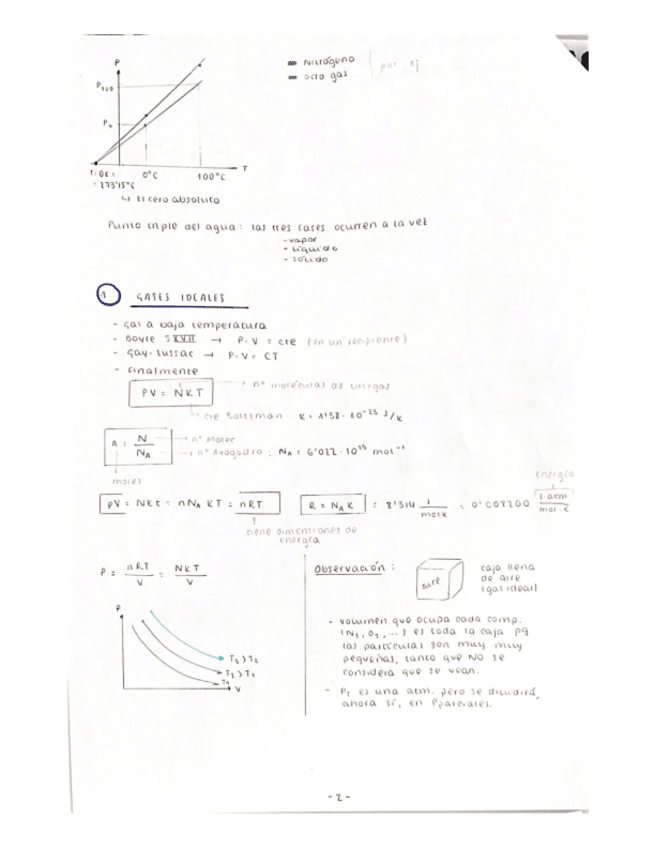 P
Nitrógeno
otro gas
por ej
P₁₀₀
P₀
T
T = 0K =
0°C
100°C
= 273'15°C
↳ El cero absoluto
Punto triple del agua: las tres fases ocurren a la vez
- vapor
- líquido
- sólido
1 GASES IDEALES
- gas a baja temperatura
- Boyle S XVII → P·V = cte (en un recipiente)
- Gay-Lussac → P·V = CT
- Finalmente
PV = NKT
nº moléculas de un gas
cte Boltzman K = 1'38·10⁻²³ J/K
n = N / N_A
nº Molec
nº Avogadro: N_A = 6'022·10²³ mol⁻¹
moles
Energía
pV = NKt = nN_A KT = nRT
R = N_A K = 8'314 J / mol·k = 0'08200 l·atm / mol·K
tiene dimensiones de
energía
P = nRT / V = NKT / V
P
T₃ > T₂
T₂ > T₁
T₁
V
Observación:
aire
caja llena
de aire
(gas ideal)
- volumen que ocupa cada comp.
(N₂, O₂, ...) es toda la caja pq
las partículas son muy muy
pequeñas, tanto que NO se
considera que se vean.
- P_T es una atm. pero se dividirá,
ahora sí, en P parciales.
- 2 -